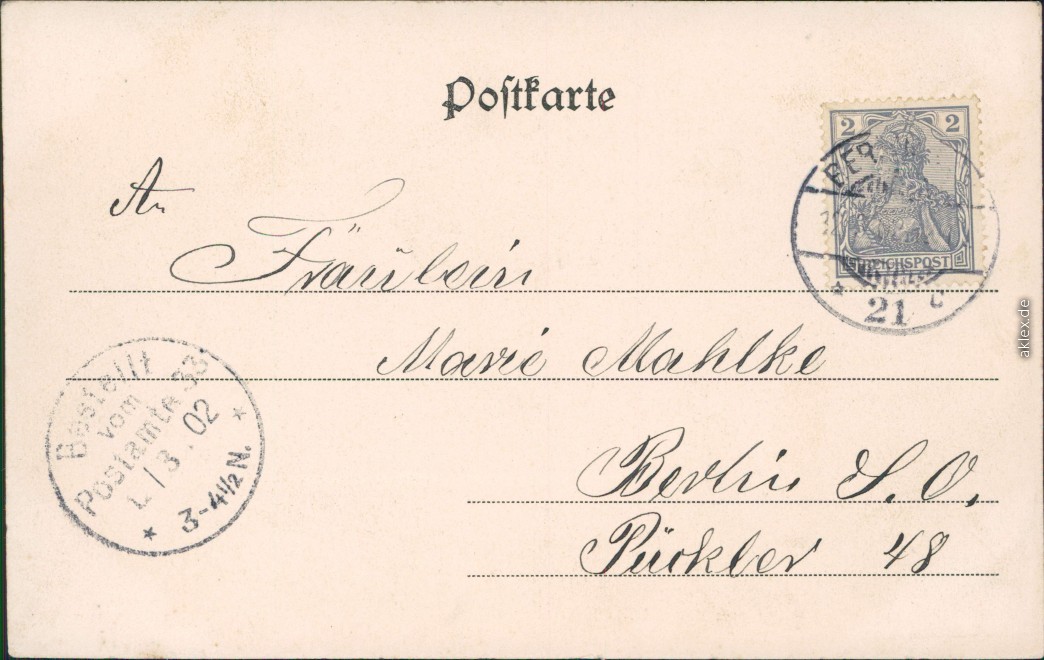 Postkarte
An
Fräulein
Marie Mahlke
Berlin S. O.
Pückler 48
2 2
REICHSPOST
BER
* 21 c
Bestellt
vom
Postamte 33
1/3. 02
* 3-4½N. *
aklex.de